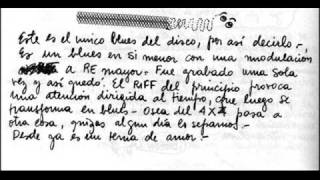 Este es el unico blues del disco, por así decirlo-,
Es un blues en Si menor con una modulación
a RE mayor- Fue grabado una sola
vez y así quedó. El RIFF del principio provoca
una atención dirigida al tiempo, que luego se
transforma en blues- Osea del 4X4 pasa a
otra cosa, quizas algun día lo sepamos-
Desde ya es un tema de amor.-